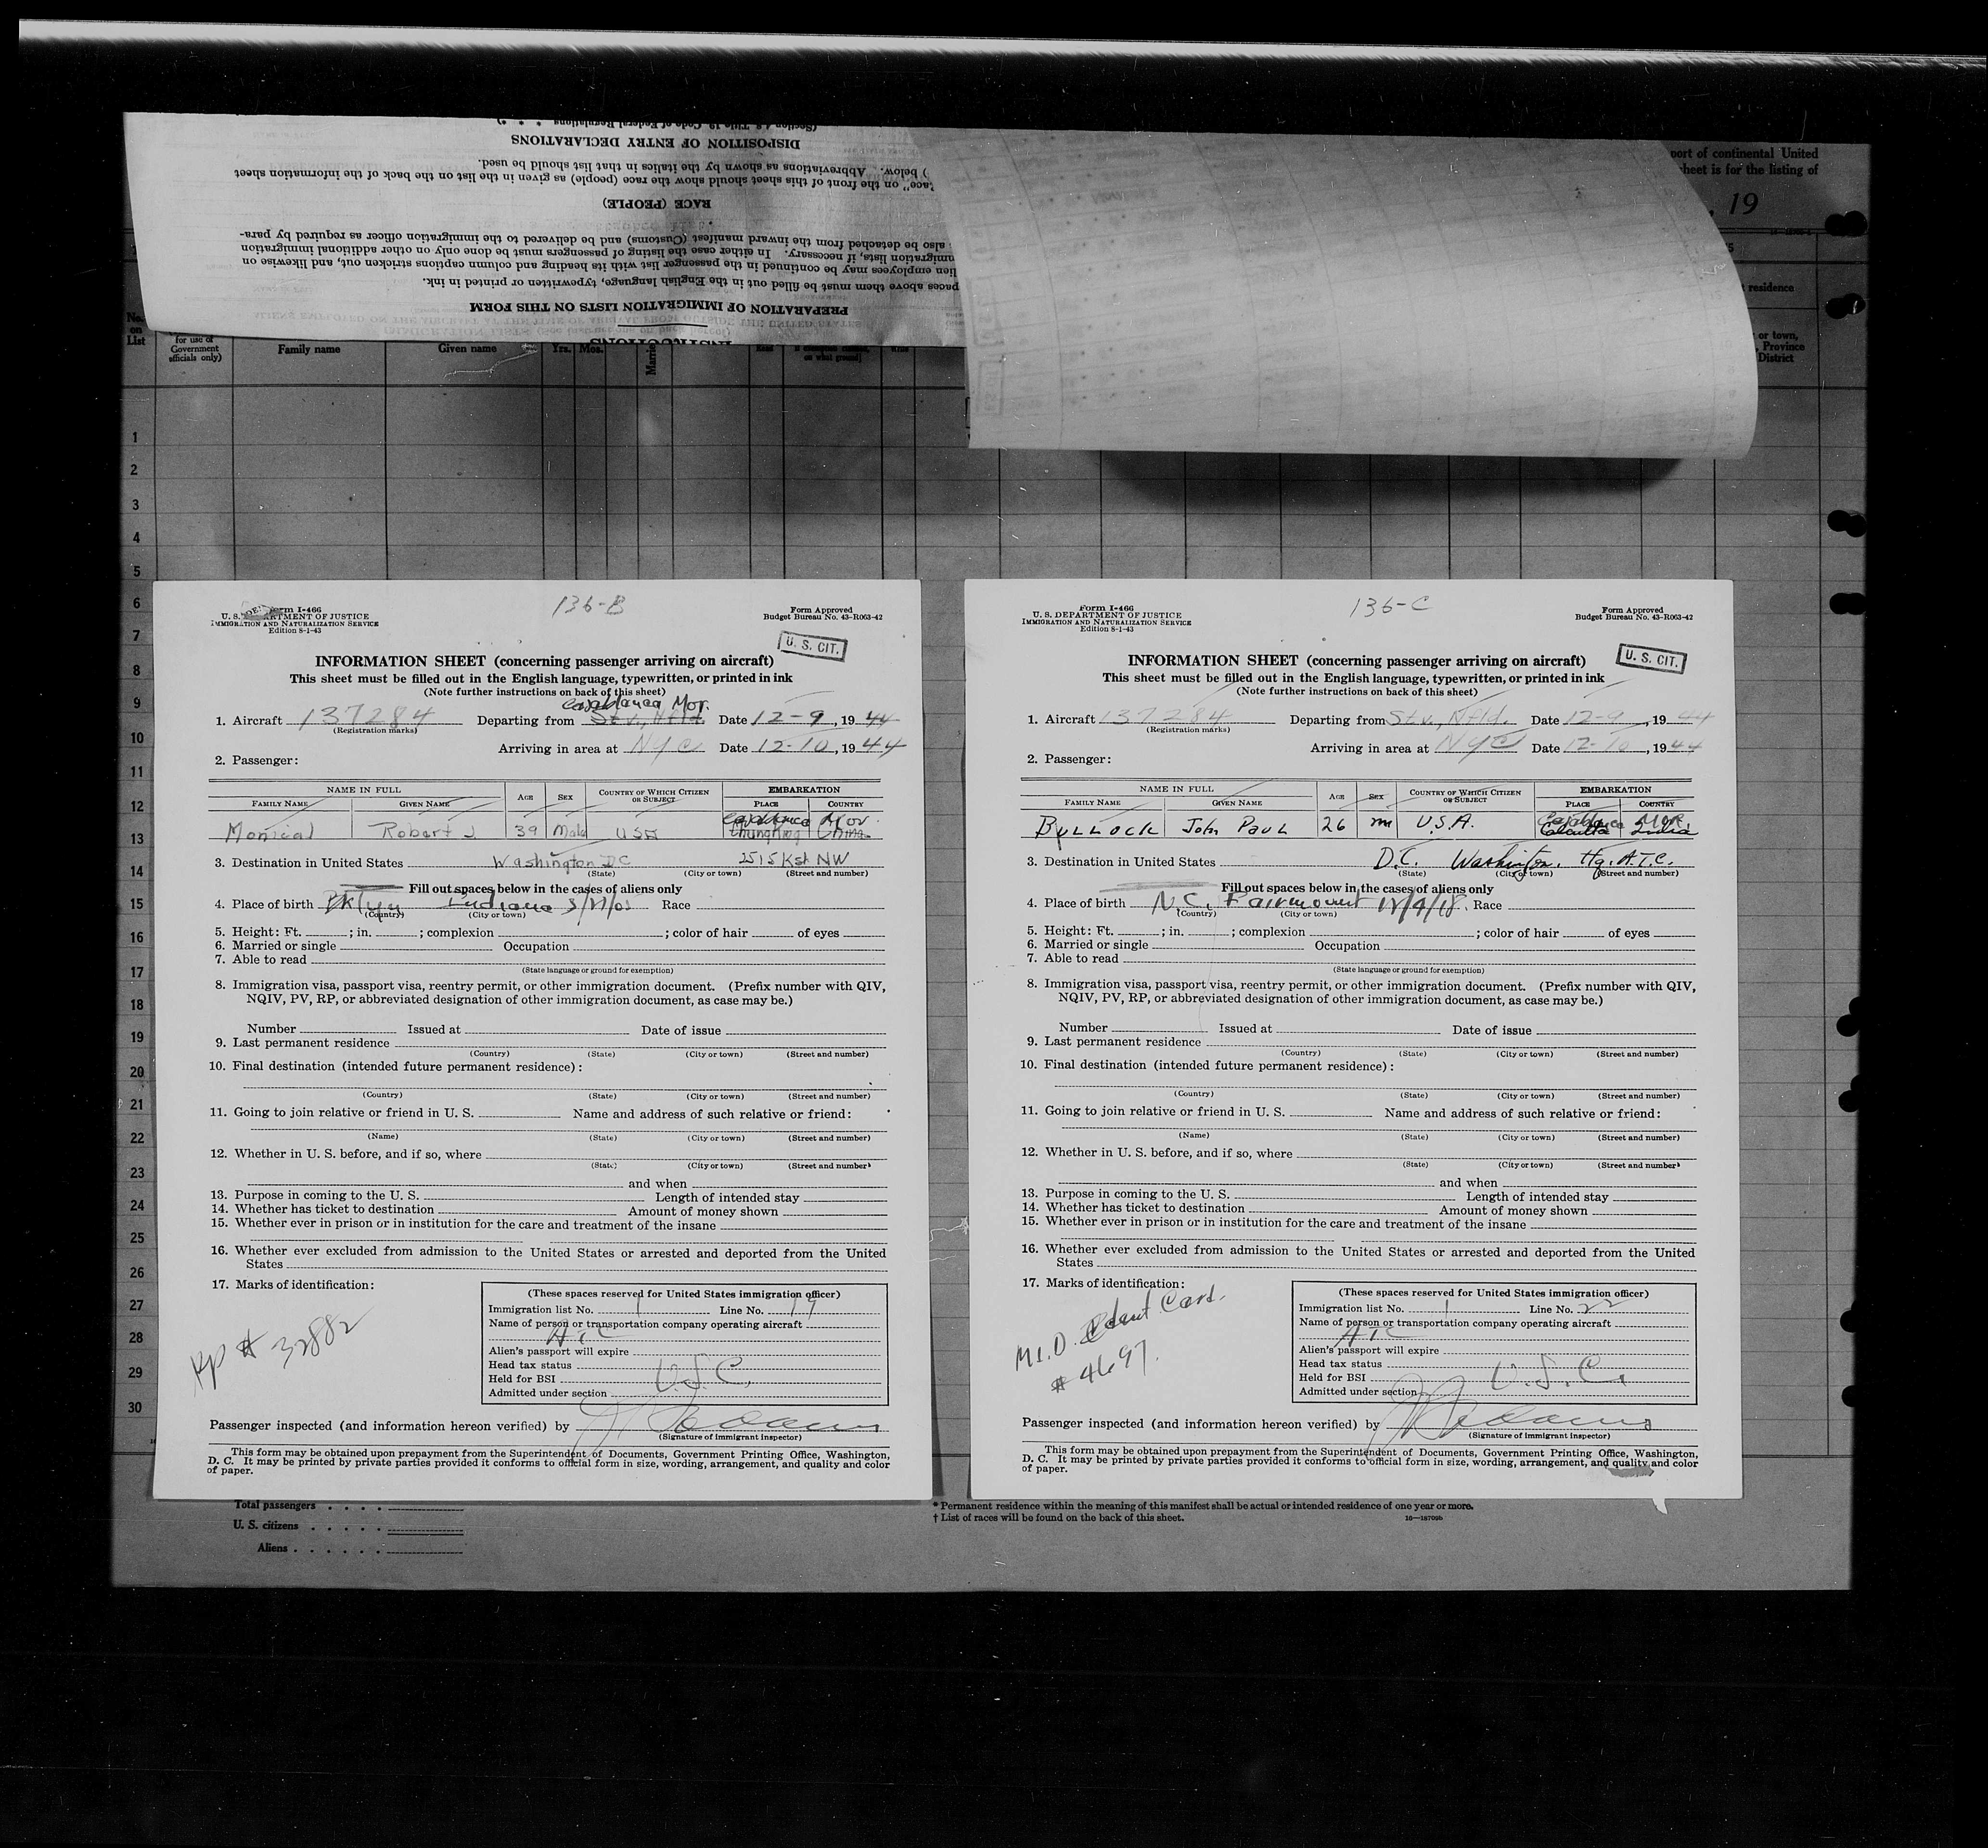 (Section 4.8, Title 19, Code of Federal Regulations * * *)
DISPOSITION OF ENTRY DECLARATIONS
) below. Abbreviations as shown by the italics in that list should be used.
Race" on the front of this sheet should show the race (people) as given in the list on the back of the information sheet
RACE (PEOPLE)
also be detached from the inward manifest (Customs) and be delivered to the immigration officer as required by para-
immigration lists, if necessary. In either case the listing of passengers must be done only on other additional immigration
lien employees may be continued in the passenger list with its heading and column captions stricken out, and likewise on
paces above them must be filled out in the English language, typewritten or printed in ink.
PREPARATION OF IMMIGRATION LISTS ON THIS FORM
INSTRUCTIONS
port of continental United
sheet is for the listing of
, 19
residence
or town,
, Province
District
No. on List
for use of Government officials only)
Family name
Given name
Yrs. Mos.
Read
on what ground]
Write
1
2
3
4
5
6
7
8
9
10
11
12
13
14
15
16
17
18
19
20
21
22
23
24
25
26
27
28
29
30
136-B
Form I-466
U. S. DEPARTMENT OF JUSTICE
IMMIGRATION AND NATURALIZATION SERVICE
Edition 8-1-43
Form Approved
Budget Bureau No. 43-R063-42
U. S. CIT.
INFORMATION SHEET (concerning passenger arriving on aircraft)
This sheet must be filled out in the English language, typewritten, or printed in ink
(Note further instructions on back of this sheet)
Casablanca Mor.
1. Aircraft 137284 Departing from Stv., Nfld. Date 12-9, 1944
(Registration marks)
Arriving in area at NYC Date 12-10, 1944
2. Passenger:
NAME IN FULL AGE SEX COUNTRY OF WHICH CITIZEN OR SUBJECT EMBARKATION
FAMILY NAME GIVEN NAME PLACE COUNTRY
Casablanca Mor.
Monical Robert J. 39 Male USA Chungking China
3. Destination in United States Washington DC 2515 K St NW
(State) (City or town) (Street and number)
Fill out spaces below in the cases of aliens only
4. Place of birth Indiana Race
(Country) (City or town)
5. Height: Ft. ; in. ; complexion ; color of hair of eyes
6. Married or single Occupation
7. Able to read
(State language or ground for exemption)
8. Immigration visa, passport visa, reentry permit, or other immigration document. (Prefix number with QIV,
NQIV, PV, RP, or abbreviated designation of other immigration document, as case may be.)
Number Issued at Date of issue
9. Last permanent residence
(Country) (State) (City or town) (Street and number)
10. Final destination (intended future permanent residence):
(Country) (State) (City or town) (Street and number)
11. Going to join relative or friend in U. S. Name and address of such relative or friend:
(Name) (State) (City or town) (Street and number)
12. Whether in U. S. before, and if so, where
(State) (City or town) (Street and number)
and when
13. Purpose in coming to the U. S. Length of intended stay
14. Whether has ticket to destination Amount of money shown
15. Whether ever in prison or in institution for the care and treatment of the insane
16. Whether ever excluded from admission to the United States or arrested and deported from the United
States
17. Marks of identification:
pp # 32882
(These spaces reserved for United States immigration officer)
Immigration list No. 1 Line No. 19
Name of person or transportation company operating aircraft
ATC
Alien's passport will expire
Head tax status
Held for BSI U.S.C.
Admitted under section
Passenger inspected (and information hereon verified) by
(Signature of immigrant inspector)
This form may be obtained upon prepayment from the Superintendent of Documents, Government Printing Office, Washington,
D. C. It may be printed by private parties provided it conforms to official form in size, wording, arrangement, and quality and color
of paper.
136-C
Form I-466
U. S. DEPARTMENT OF JUSTICE
IMMIGRATION AND NATURALIZATION SERVICE
Edition 8-1-43
Form Approved
Budget Bureau No. 43-R063-42
U. S. CIT.
INFORMATION SHEET (concerning passenger arriving on aircraft)
This sheet must be filled out in the English language, typewritten, or printed in ink
(Note further instructions on back of this sheet)
1. Aircraft 137284 Departing from Stv., Nfld. Date 12-9, 1944
(Registration marks)
Arriving in area at NYC Date 12-10, 1944
2. Passenger:
NAME IN FULL AGE SEX COUNTRY OF WHICH CITIZEN OR SUBJECT EMBARKATION
FAMILY NAME GIVEN NAME PLACE COUNTRY
Casablanca Mor.
BULLOCK John PAUL 26 m U.S.A. Calcutta India
3. Destination in United States D.C. Washington. Hq. A.T.C.
(State) (City or town) (Street and number)
Fill out spaces below in the cases of aliens only
4. Place of birth N.C. Fairmount 12/4/18. Race
(Country) (City or town)
5. Height: Ft. ; in. ; complexion ; color of hair of eyes
6. Married or single Occupation
7. Able to read
(State language or ground for exemption)
8. Immigration visa, passport visa, reentry permit, or other immigration document. (Prefix number with QIV,
NQIV, PV, RP, or abbreviated designation of other immigration document, as case may be.)
Number Issued at Date of issue
9. Last permanent residence
(Country) (State) (City or town) (Street and number)
10. Final destination (intended future permanent residence):
(Country) (State) (City or town) (Street and number)
11. Going to join relative or friend in U. S. Name and address of such relative or friend:
(Name) (State) (City or town) (Street and number)
12. Whether in U. S. before, and if so, where
(State) (City or town) (Street and number)
and when
13. Purpose in coming to the U. S. Length of intended stay
14. Whether has ticket to destination Amount of money shown
15. Whether ever in prison or in institution for the care and treatment of the insane
16. Whether ever excluded from admission to the United States or arrested and deported from the United
States
17. Marks of identification:
M.I.D. Ident Card.
# 4697.
(These spaces reserved for United States immigration officer)
Immigration list No. 1 Line No. 22
Name of person or transportation company operating aircraft
ATC
Alien's passport will expire
Head tax status
Held for BSI U.S.C.
Admitted under section
Passenger inspected (and information hereon verified) by
(Signature of immigrant inspector)
This form may be obtained upon prepayment from the Superintendent of Documents, Government Printing Office, Washington,
D. C. It may be printed by private parties provided it conforms to official form in size, wording, arrangement, and quality and color
of paper.
Total passengers . . . .
U. S. citizens . . . . .
Aliens . . . . . .
* Permanent residence within the meaning of this manifest shall be actual or intended residence of one year or more.
† List of races will be found on the back of this sheet.
16—18709b